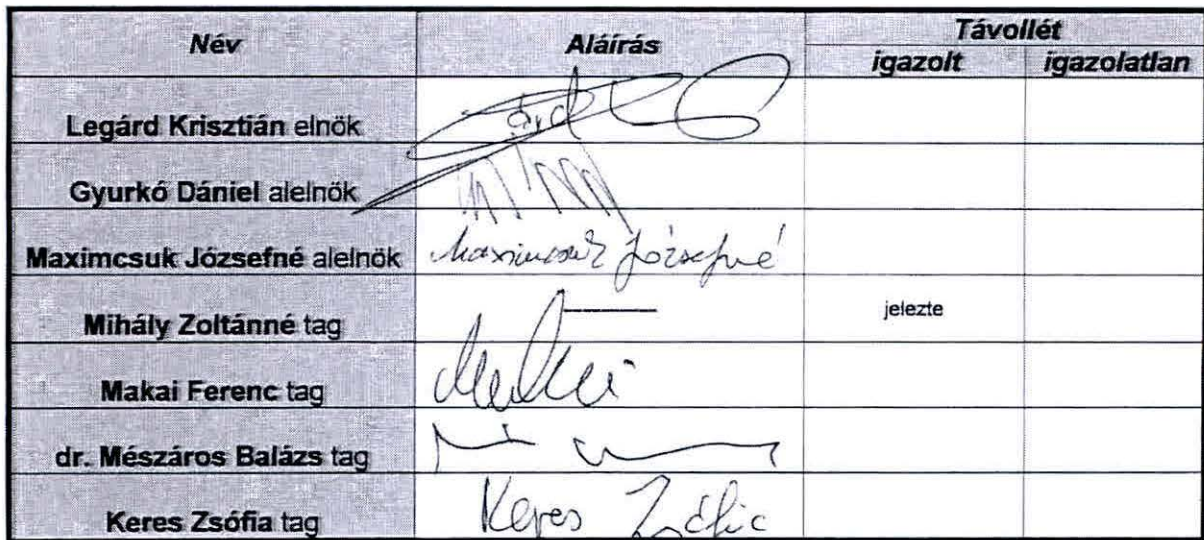 Név Aláírás Távollét
igazolt igazolatlan
Legárd Krisztián elnök
Gyurkó Dániel alelnök
Maximcsuk Józsefné alelnök Maximcsuk Józsefné
Mihály Zoltánné tag jelezte
Makai Ferenc tag Makai
dr. Mészáros Balázs tag
Keres Zsófia tag Keres Zsófia